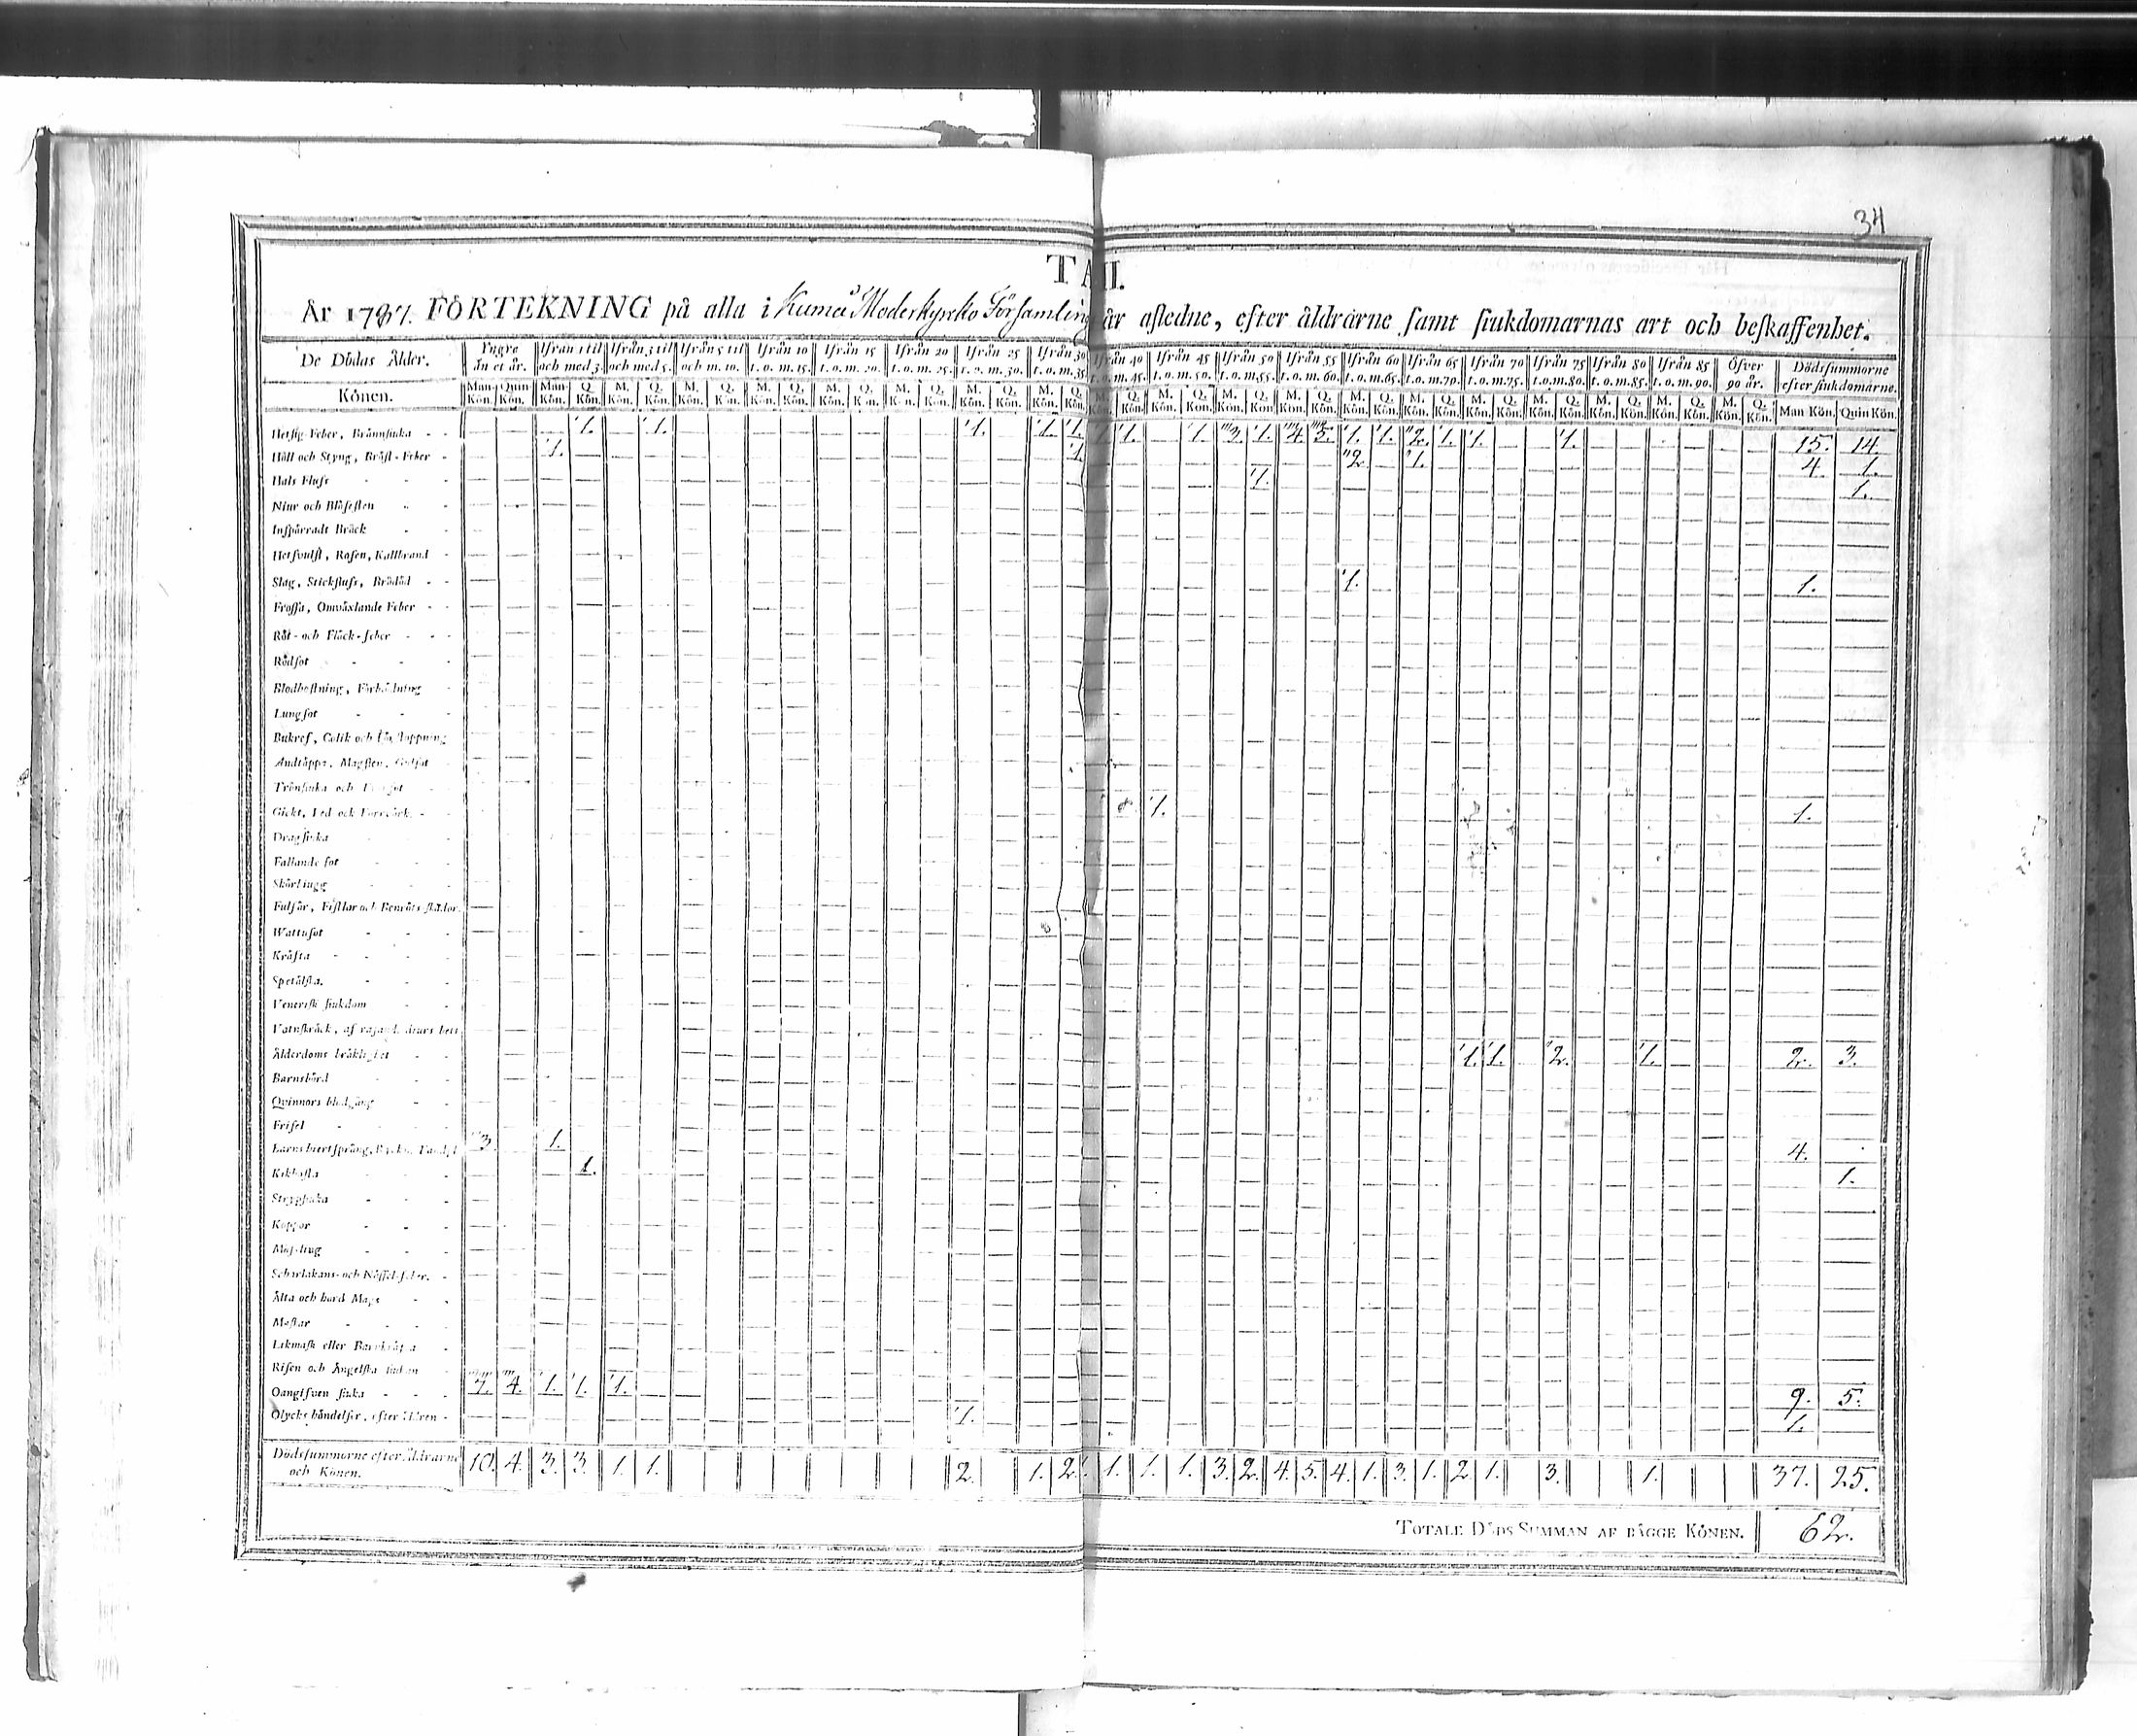 34
TA II.
År 1787. FÖRTEKNING på alla i Kumå Moderkyrko Församling år afledne, efter åldrarne samt siukdomarnas art och beskaffenhet.
De Dödas Ålder. Yngre än et år. Ifrån 1 til och med 3. Ifrån 3 til och med 5. Ifrån 5 til och m. 10. Ifrån 10 t. o. m. 15. Ifrån 15 t. o. m. 20. Ifrån 20 t. o. m. 25. Ifrån 25 t. o. m. 30. Ifrån 30 t. o. m. 35. Ifrån 40 t. o. m. 45. Ifrån 45 t. o. m. 50. Ifrån 50 t. o. m. 55. Ifrån 55 t. o. m. 60. Ifrån 60 t. o. m. 65. Ifrån 65 t. o. m. 70. Ifrån 70 t. o. m. 75. Ifrån 75 t. o. m. 80. Ifrån 80 t. o. m. 85. Ifrån 85 t. o. m. 90. Öfver 90 år. Dödssummorne efter siukdomarne.
Könen. Man Kön. Quin Kön. Man Kön. Q. Kön. M. Kön. Q. Kön. M. Kön. Q. Kön. M. Kön. Q. Kön. M. Kön. Q. Kön. M. Kön. Q. Kön. M. Kön. Q. Kön. M. Kön. Q. Kön. M. Kön. Q. Kön. M. Kön. Q. Kön. M. Kön. Q. Kön. M. Kön. Q. Kön. M. Kön. Q. Kön. M. Kön. Q. Kön. M. Kön. Q. Kön. M. Kön. Q. Kön. M. Kön. Q. Kön. M. Kön. Q. Kön. M. Kön. Q. Kön. Man Kön. Quin Kön.
Hetsig Feber, Brännsiuka - - 1. 1. 1. 1. 1. 1. 1. 1. 3. 1. 4. 5. 1. 1. 2. 1. 1. 1. 15. 14.
Håll och Styng, Bröst-Feber - 1. 1. 2. 1. 4. 1.
Hals Fluss 1. 1.
Niur och Blåsesten
Inspärradt Bråck
Hetsvulst, Rosen, Kallbrand
Slag, Stickfluss, Brådöd - - 1. 1.
Frossa, Omväxlande Feber - -
Röt- och Fläck-feber - - -
Rödsot
Blodhostning, Förblödning
Lungsot
Bukref, Colik och
Andtäppa, Magsten,
Trånsiuka och
Gickt, Led och 1. 1.
Dragsiuka
Fallande sot
Skörbiugg
Fulsår, Fistlar och Benröts-skador.
Wattusot
Kräfta
Spetälska.
Venerisk siukdom
Vatuskräck, af rasand. diurs bett
Ålderdoms bräklighet 1. 1. 2. 1. 2. 3.
Barnsbörd
Qvinnors blodgång
Frisel
Barns hiertsprång, 3. 1. 4.
Kikhosta 1. 1.
Strypsiuka
Koppor
Mässling
Scharlakans- och Nässel-feber.
Älta och hård Mage
Maskar
Likmask eller
Risen och Ängelska siukan
Oangifven siuka 7. 4. 1. 1. 1. 9. 5.
Olycks händelser, efter - 1. 1.
Dödssummorne efter åldrarne och Könen. 10. 4. 3. 3. 1. 1. 2. 1. 2. 1. 1. 1. 3. 2. 4. 5. 4. 1. 3. 1. 2. 1. 3. 1. 37. 25.
TOTALE DÖDS SUMMAN AF BÄGGE KÖNEN. 62.